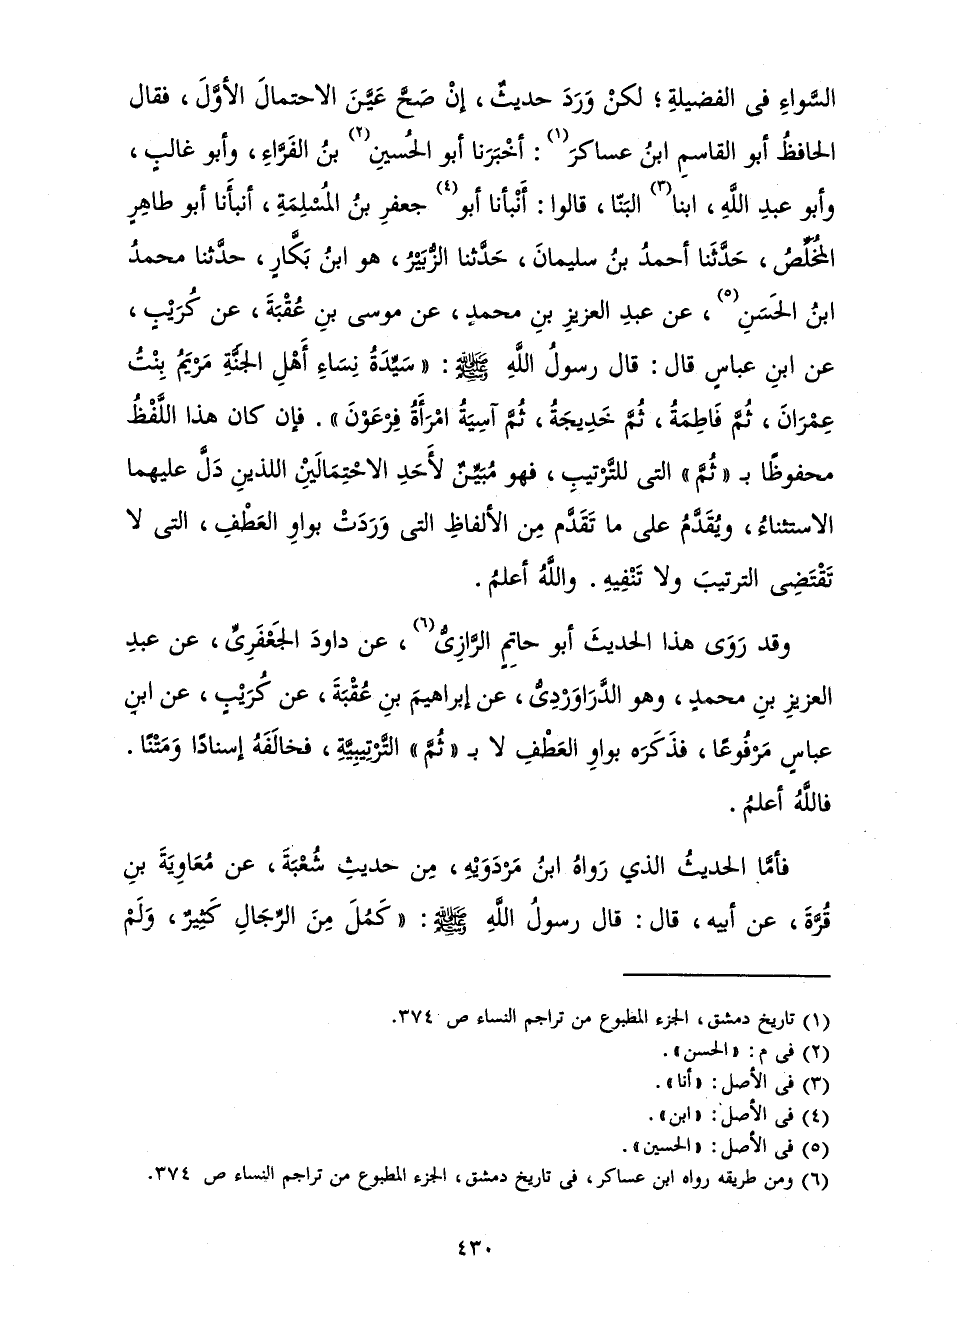 السَّواءِ فى الفضيلةِ ؛ لكنْ وَرَدَ حديثٌ ، إنْ صَحَّ عَيَّنَ الاحتمالَ الأوَّلَ ، فقال
الحافظُ أبو القاسمِ ابنُ عساكرَ (١) : أخْبَرَنا أبو الحُسينِ (٢) بنُ الفَرَّاءِ ، وأبو غالبٍ ،
وأبو عبدِ اللَّهِ ، ابنا (٣) البَنّا ، قالوا : أَنْبأنا أبو (٤) جعفرِ بنُ المُسْلِمَةِ ، أنبأنا أبو طاهرٍ
المُخَلِّصُ ، حَدَّثَنا أحمدُ بنُ سليمانَ ، حَدَّثنا الزُّبَيْرُ ، هو ابنُ بَكَّارٍ ، حدَّثنا محمدُ
ابنُ الحَسَنِ (٥) ، عن عبدِ العزيزِ بنِ محمدٍ ، عن موسى بنِ عُقْبَةَ ، عن كُرَيْبٍ ،
عن ابنِ عباسٍ قال : قال رسولُ اللَّهِ ﷺ : « سَيِّدَةُ نِسَاءِ أَهْلِ الجنَّةِ مَرْيَمُ بِنْتُ
عِمْرَانَ ، ثُمَّ فَاطِمَةُ ، ثُمَّ خَدِيجَةُ ، ثُمَّ آسِيَةُ امْرَأَةُ فِرْعَوْنَ » . فإن كان هذا اللَّفْظُ
محفوظًا بـ « ثُمَّ » التى للتَّرْتيبِ ، فهو مُبَيِّنٌ لأَحَدِ الاحْتِمَالَيْنِ اللذينِ دَلَّ عليهما
الاستثناءُ ، ويُقَدَّمُ على ما تَقَدَّم مِن الألفاظِ التى وَرَدَتْ بواوِ العَطْفِ ، التى لا
تَقْتَضِى الترتيبَ ولا تَنْفِيهِ . واللَّهُ أعلمُ .
وقد رَوَى هذا الحديثَ أبو حاتِمٍ الرَّازِىُّ (٦) ، عن داودَ الجَعْفَرِىِّ ، عن عبدِ
العزيزِ بنِ محمدٍ ، وهو الدَّرَاوَرْدِىُّ ، عن إبراهيمَ بنِ عُقْبَةَ ، عن كُرَيْبٍ ، عن ابنِ
عباسٍ مَرْفُوعًا ، فذَكَرَه بواوِ العَطْفِ لا بـ « ثُمَّ » التَّرْتِيبِيَّةِ ، فخالَفَهُ إسنادًا وَمَتْنًا .
فاللَّهُ أعلمُ .
فأمَّا الحديثُ الذي رَواهُ ابنُ مَرْدَوَيْهِ ، مِن حديثِ شُعْبَةَ ، عن مُعَاوِيَةَ بنِ
قُرَّةَ ، عن أبيه ، قال : قال رسولُ اللَّهِ ﷺ : « كَمُلَ مِنَ الرِّجَالِ كَثِيرٌ ، وَلَمْ
(١) تاريخ دمشق ، الجزء المطبوع من تراجم النساء ص ٣٧٤.
(٢) فى م : « الحسن » .
(٣) فى الأصل : « أنا » .
(٤) فى الأصل : « ابن » .
(٥) فى الأصل : « الحسين » .
(٦) ومن طريقه رواه ابن عساكر ، فى تاريخ دمشق ، الجزء المطبوع من تراجم النساء ص ٣٧٤.
٤٣٠